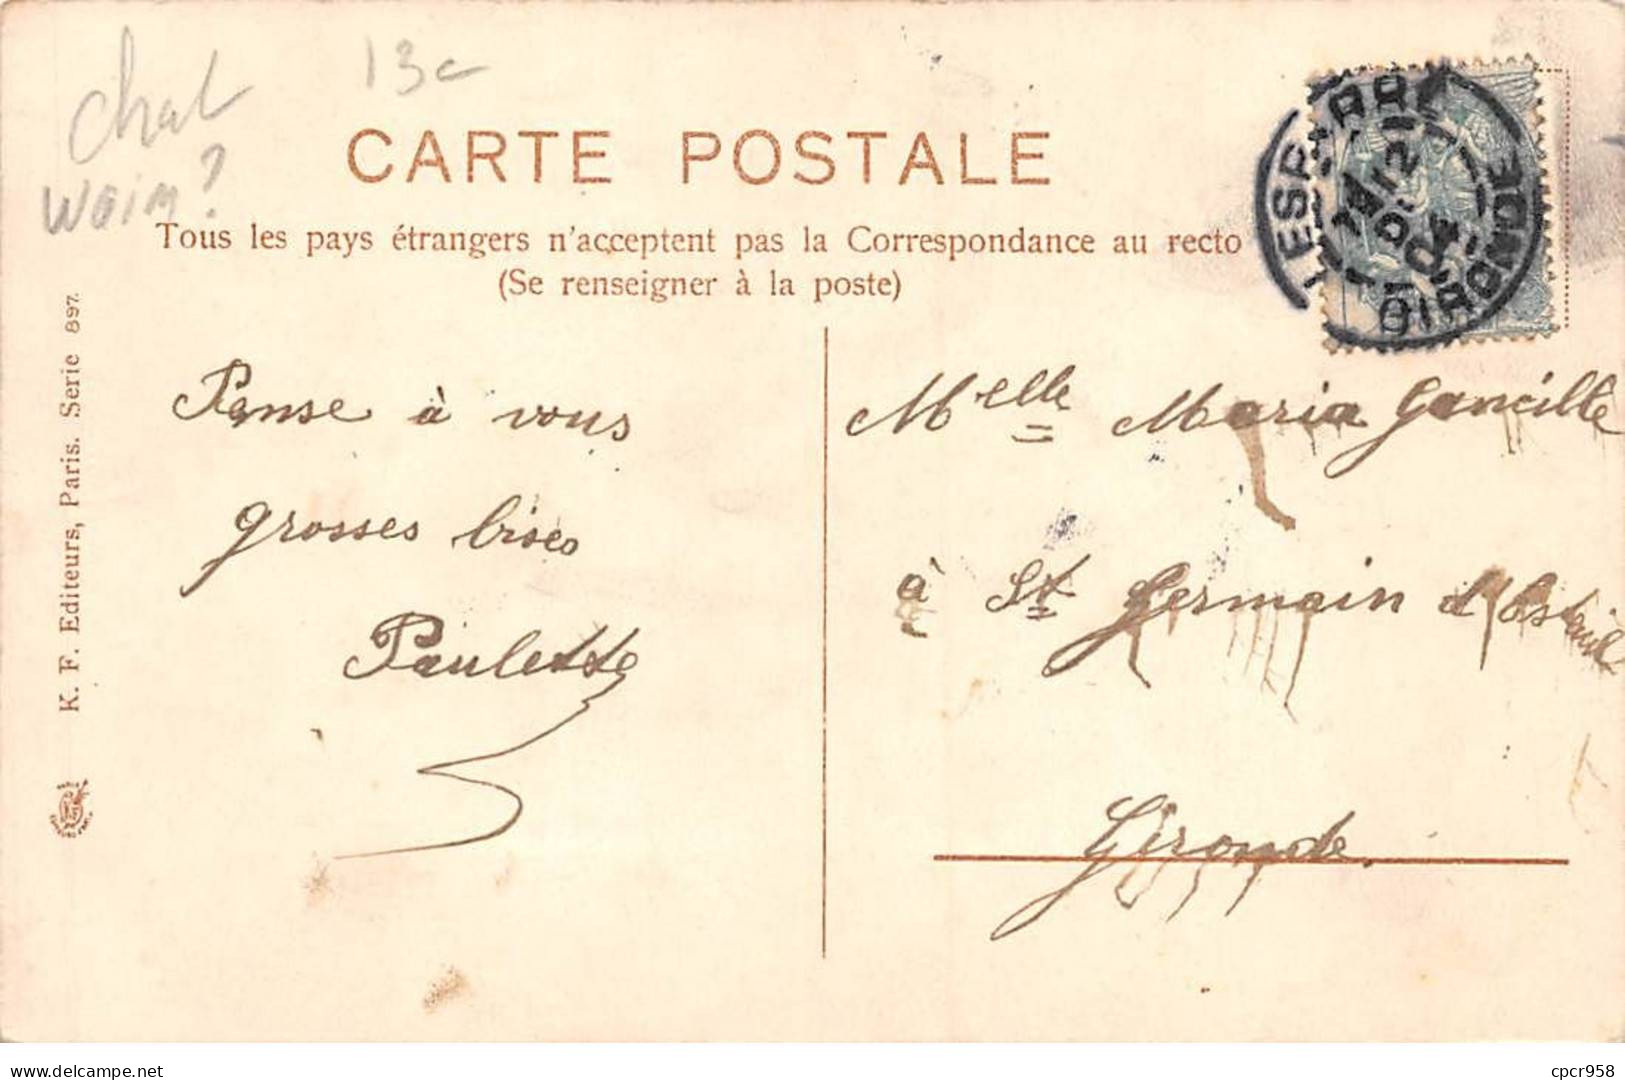 chat
13c
wain?
CARTE POSTALE
Tous les pays étrangers n'acceptent pas la Correspondance au recto
(Se renseigner à la poste)
LESPARRE
GIRONDE
K. F. Editeurs, Paris. Serie 897.
Panse à vous
grosses bises
Paulette
Melle Maria Ganeille
à St Germain d'Esteuil
Gironde.
cpcr958